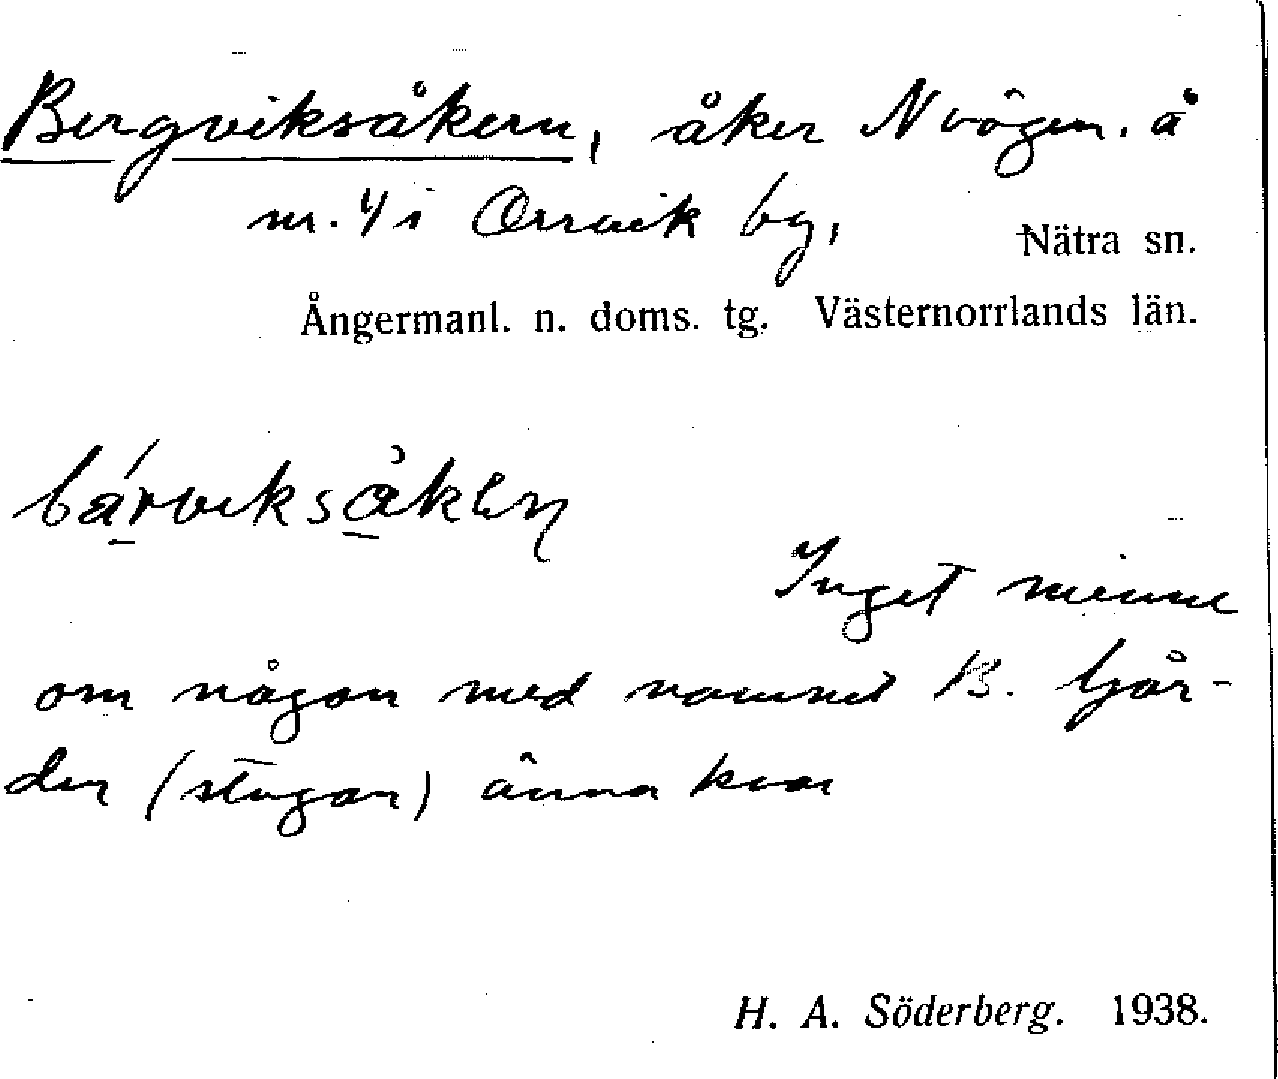 Bergviksåkern, åker N vägen. å
nr. 4 i Orrvik by,
Nätra sn.
Ångermanl. n. doms. tg. Västernorrlands län.
bárviksåken
Inget minne
om någon med namnet B. Går-
den (stugan) änna kvar
H. A. Söderberg. 1938.